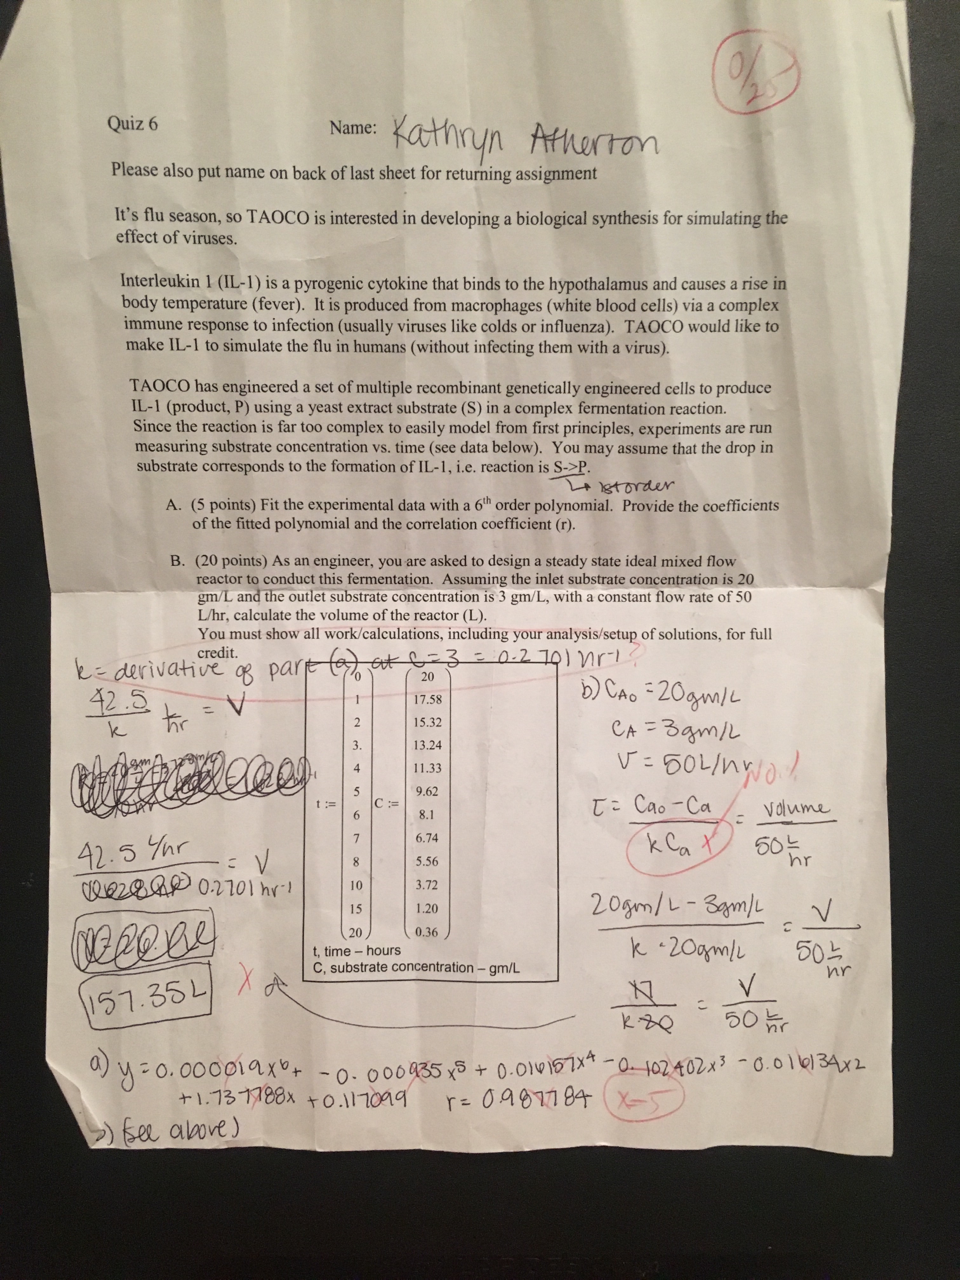 0/25
Quiz 6 Name: Kathryn Atherton
Please also put name on back of last sheet for returning assignment
It's flu season, so TAOCO is interested in developing a biological synthesis for simulating the
effect of viruses.
Interleukin 1 (IL-1) is a pyrogenic cytokine that binds to the hypothalamus and causes a rise in
body temperature (fever). It is produced from macrophages (white blood cells) via a complex
immune response to infection (usually viruses like colds or influenza). TAOCO would like to
make IL-1 to simulate the flu in humans (without infecting them with a virus).
TAOCO has engineered a set of multiple recombinant genetically engineered cells to produce
IL-1 (product, P) using a yeast extract substrate (S) in a complex fermentation reaction.
Since the reaction is far too complex to easily model from first principles, experiments are run
measuring substrate concentration vs. time (see data below). You may assume that the drop in
substrate corresponds to the formation of IL-1, i.e. reaction is S->P.
↳ 1st order
A. (5 points) Fit the experimental data with a 6th order polynomial. Provide the coefficients
of the fitted polynomial and the correlation coefficient (r).
B. (20 points) As an engineer, you are asked to design a steady state ideal mixed flow
reactor to conduct this fermentation. Assuming the inlet substrate concentration is 20
gm/L and the outlet substrate concentration is 3 gm/L, with a constant flow rate of 50
L/hr, calculate the volume of the reactor (L).
You must show all work/calculations, including your analysis/setup of solutions, for full
credit.
k = derivative of part (a) at C=3 = 0.2701 hr-1 ?
42.5 / k L/hr = V
42.5 L/hr / 0.2701 hr-1 = V
157.35L X
t := C :=
0 20
1 17.58
2 15.32
3. 13.24
4 11.33
5 9.62
6 8.1
7 6.74
8 5.56
10 3.72
15 1.20
20 0.36
t, time – hours
C, substrate concentration – gm/L
b) CA0 = 20gm/L
CA = 3gm/L
V = 50L/hr
NO!
τ = Ca0 - Ca / kCa X = volume / 50 L/hr
20gm/L - 3gm/L / k · 20gm/L = V / 50 L/hr
17 / k 20 = V / 50 L/hr
a) y = 0.000019x6 + - 0.000935x5 + 0.016157x4 - 0.102402x3 - 0.016134x2
+1.737788x + 0.117099 r = 0.987784 X-5
(see above)